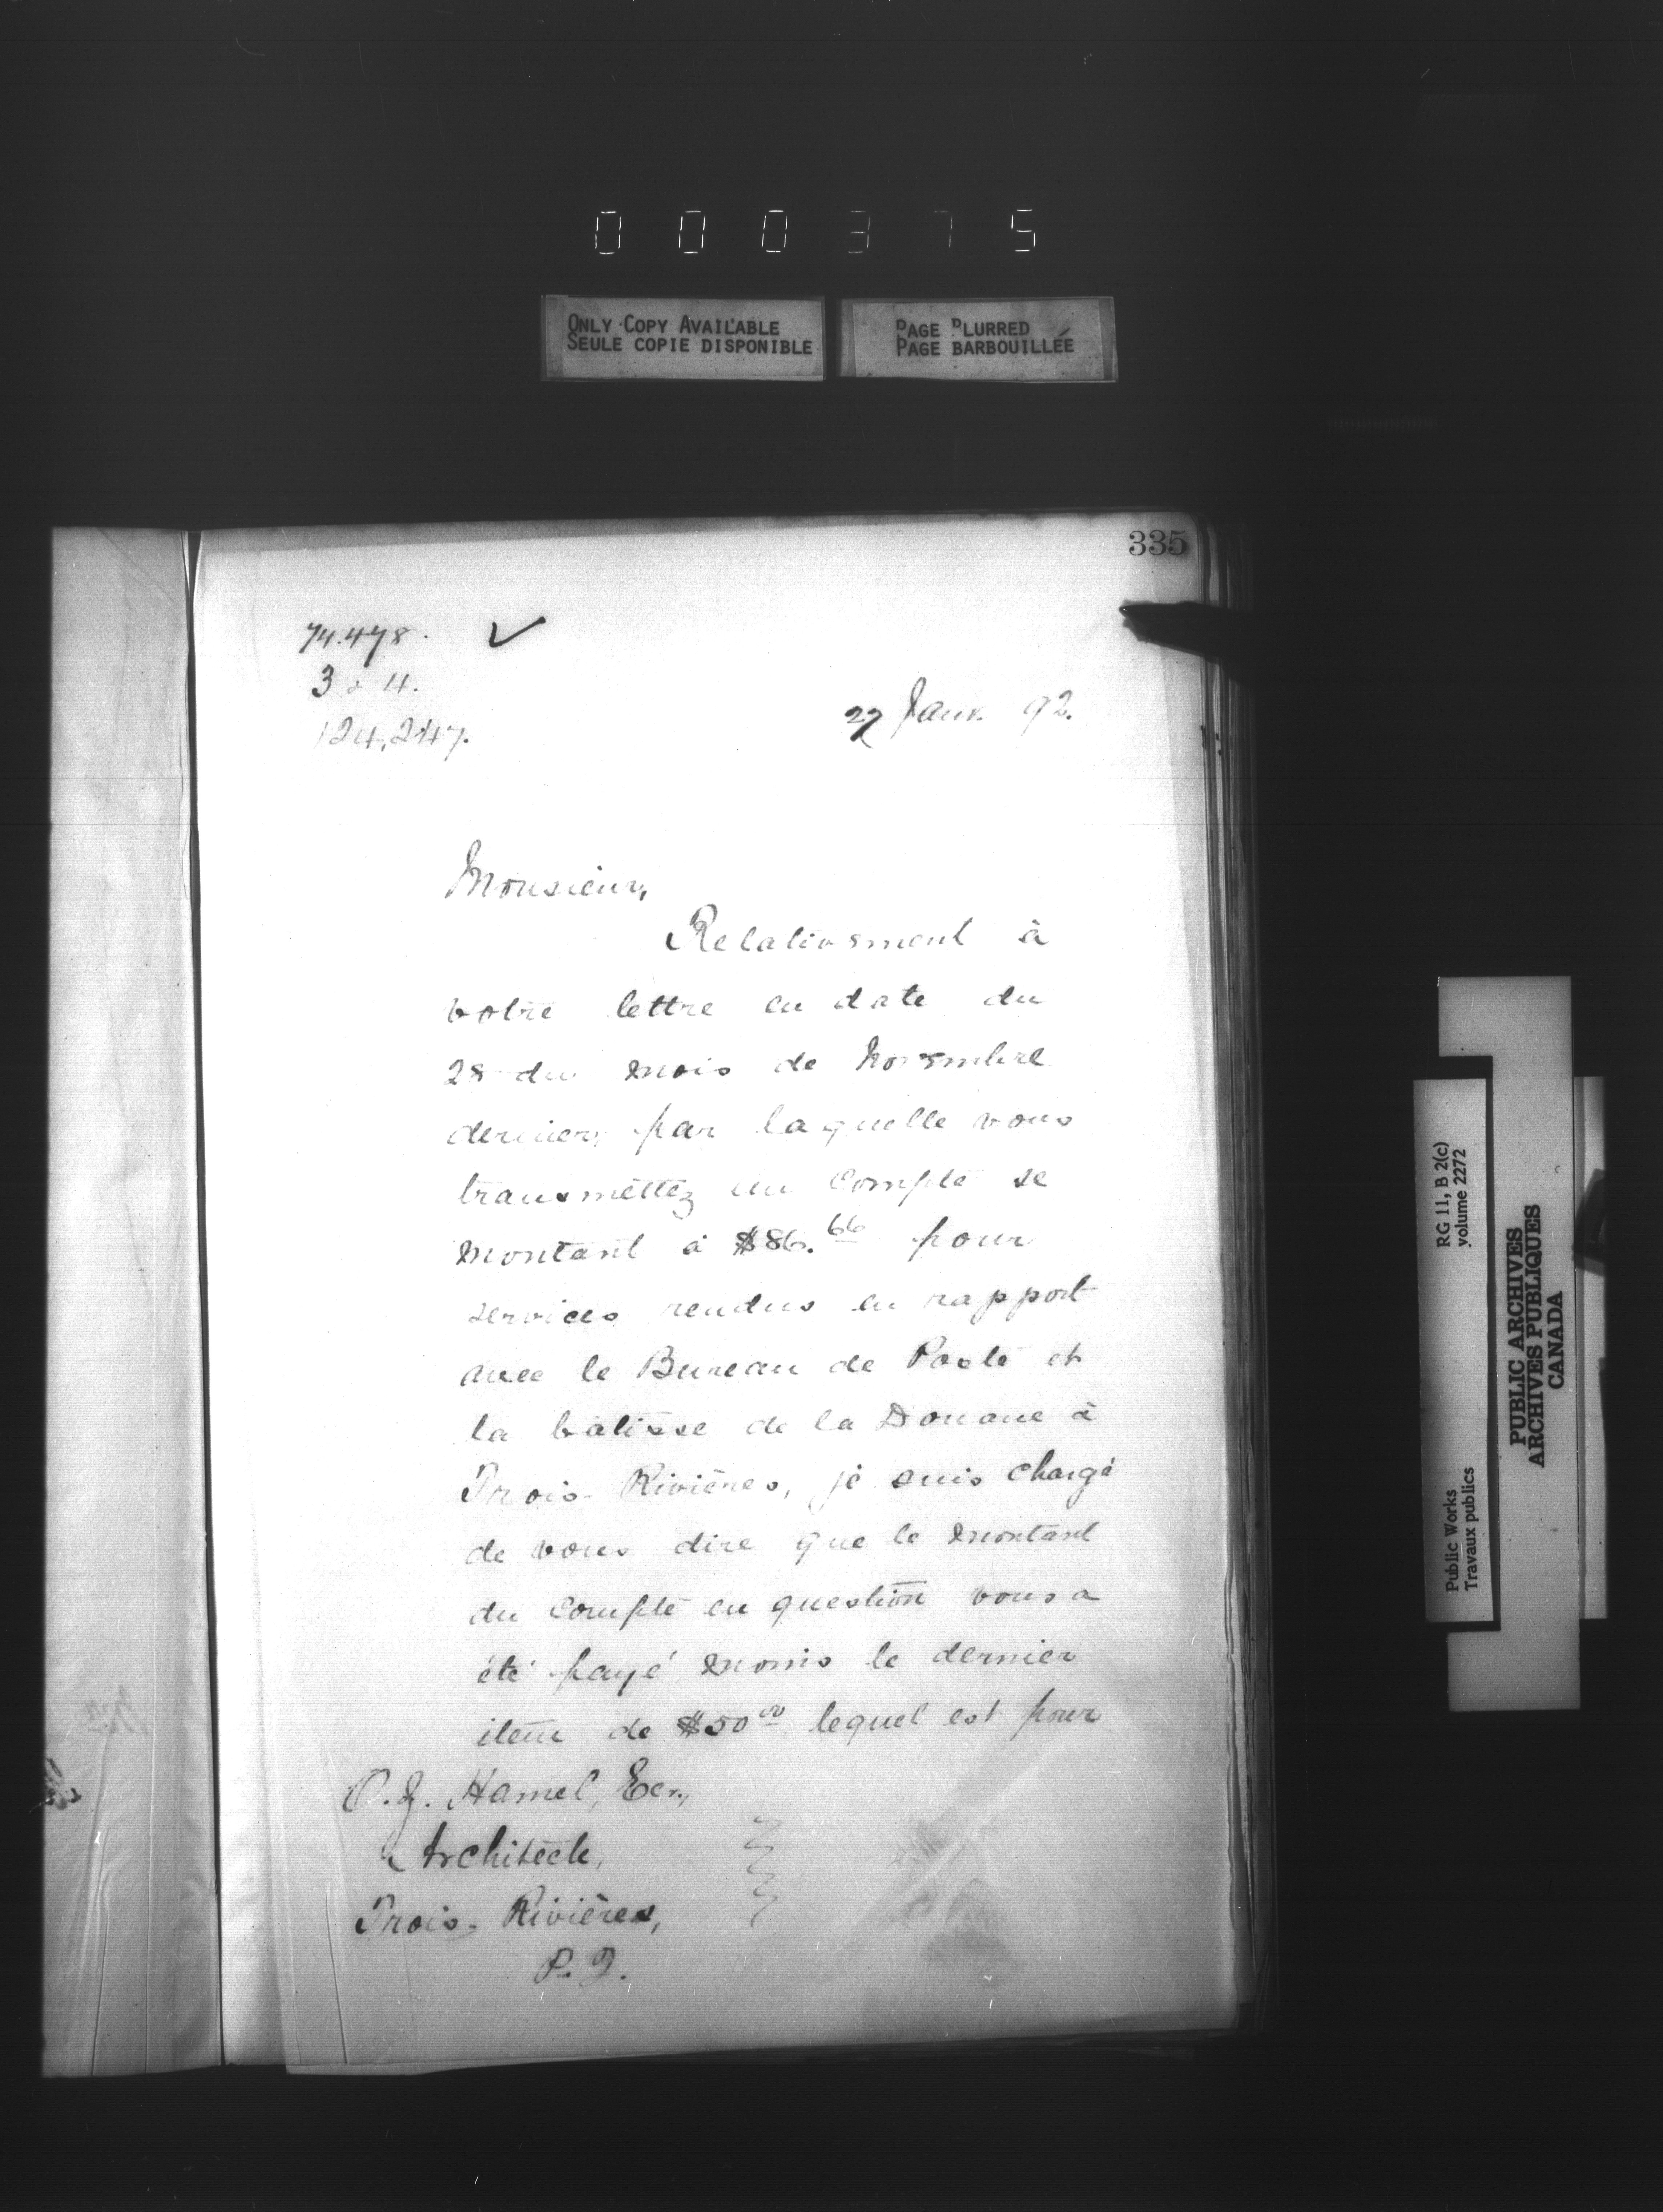 000375
ONLY COPY AVAILABLE
SEULE COPIE DISPONIBLE
PAGE BLURRED
PAGE BARBOUILLÉE
335
74.478. ✓
3 & 4.
124,247.
27 Janv. 92.
Monsieur,
Relativement à
votre lettre en date du
28 du mois de Novembre
dernier, par laquelle vous
transmettez un compte se
montant à $86.66 pour
services rendus en rapport
avec le Bureau de Poste et
la batisse de la Douane à
Trois-Rivières, je suis chargé
de vous dire que le montant
du compte en question vous a
été payé moins le dernier
item de $50.00 lequel est pour
Hamel, Ecr.,
Architecte,
Trois-Rivières,
P. Q.
RG 11, B 2(c)
volume 2272
Public Works
Travaux publics
PUBLIC ARCHIVES
ARCHIVES PUBLIQUES
CANADA